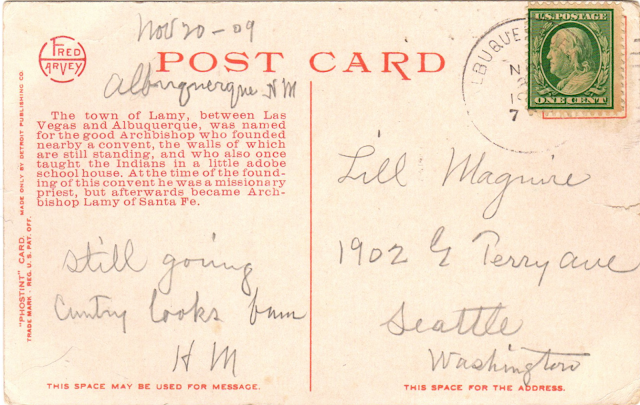 Nov 20-09
FRED
HARVEY
POST CARD
Albuquerque NM
U.S. POSTAGE
ONE CENT
The town of Lamy, between Las
Vegas and Albuquerque, was named
for the good Archbishop who founded
nearby a convent, the walls of which
are still standing, and who also once
taught the Indians in a little adobe
school house. At the time of the found-
ing of this convent he was a missionary
priest, but afterwards became Arch-
bishop Lamy of Santa Fe.
"PHOSTINT" CARD. MADE ONLY BY DETROIT PUBLISHING CO.
TRADE MARK - REG. U. S. PAT. OFF.
still going
Cuntry looks
H M
Lill Maguire
1902 E Terry ave
Seattle
Washington
THIS SPACE MAY BE USED FOR MESSAGE.
THIS SPACE FOR THE ADDRESS.